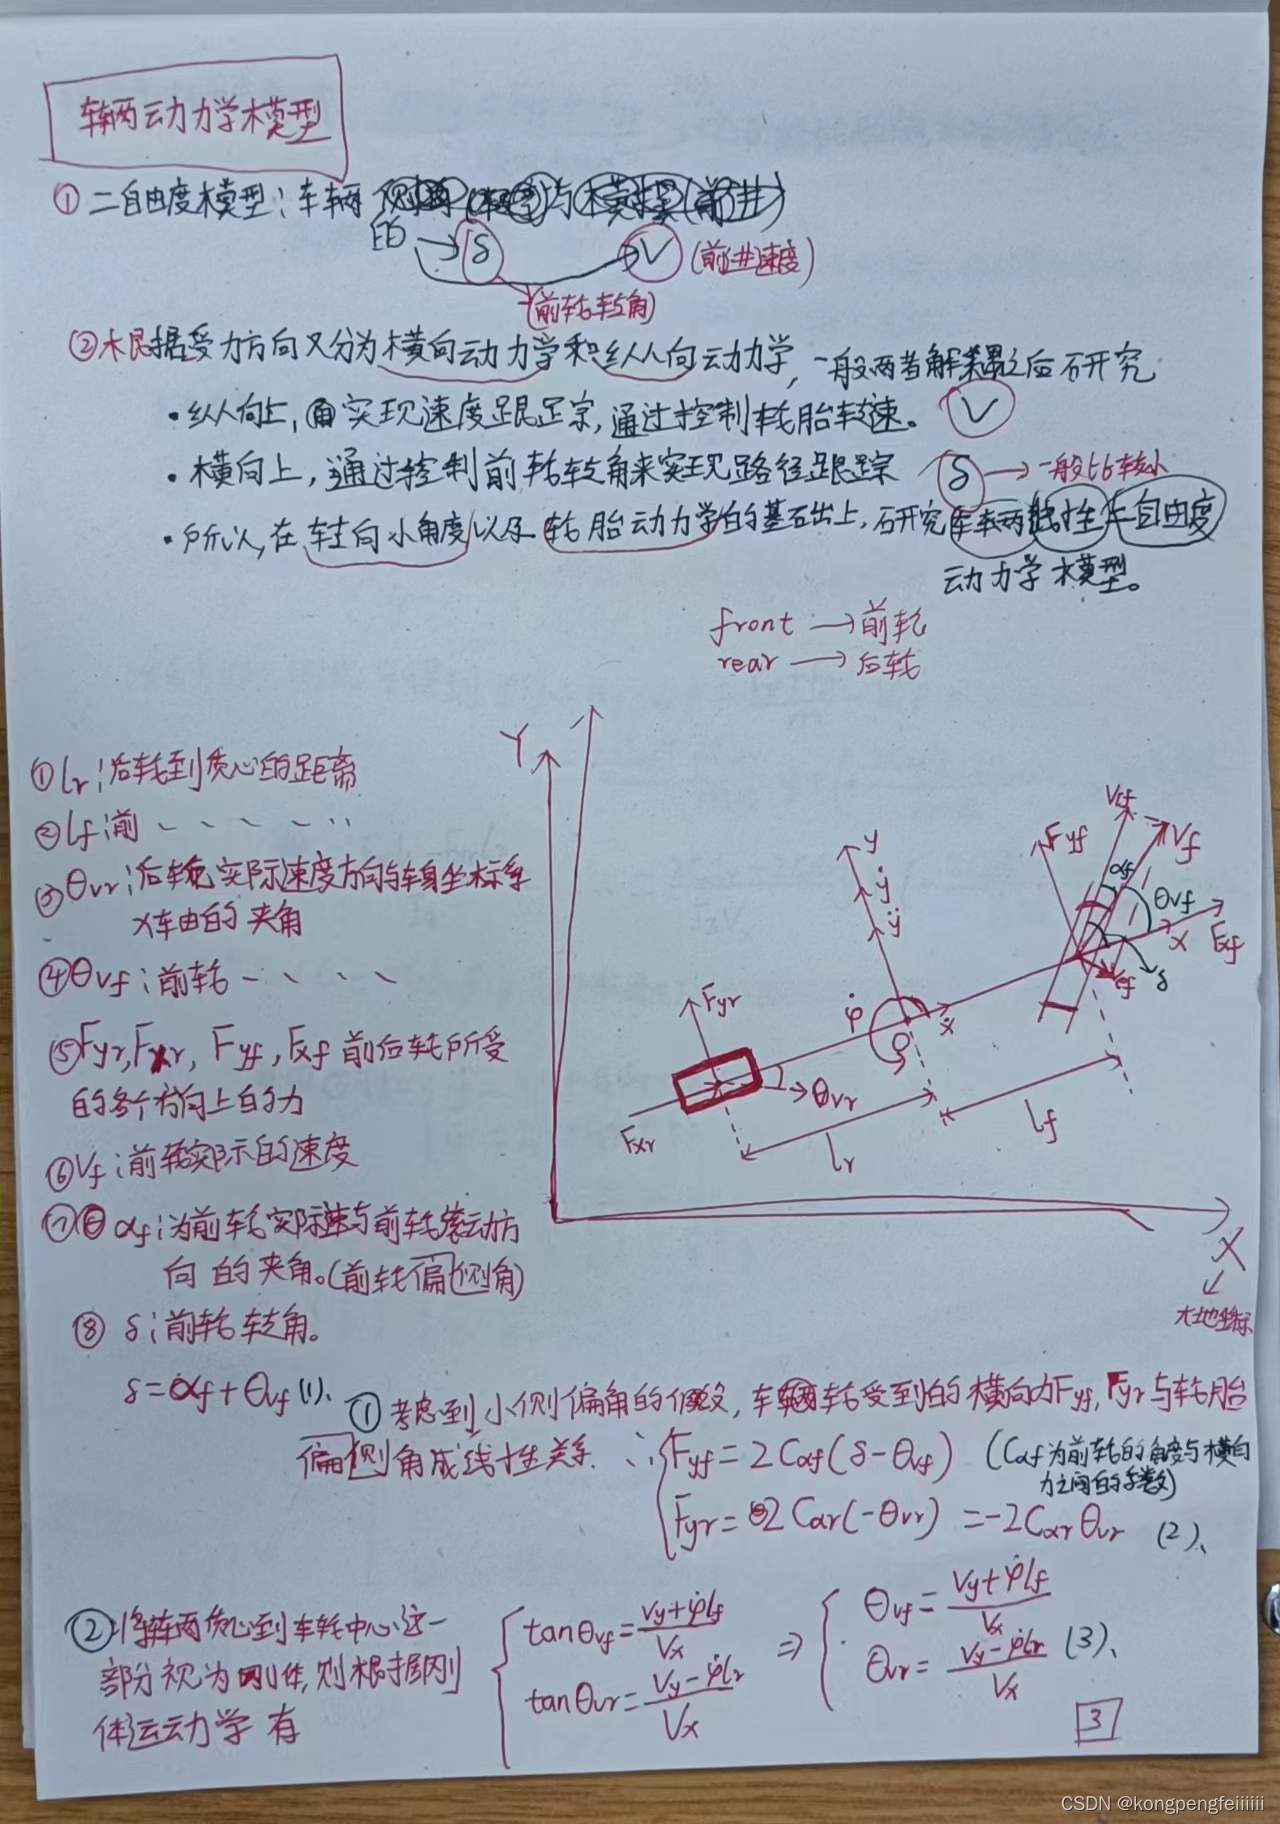 车辆动力学模型
① 二自由度模型：车辆
的 → δ V (前进速度)
(前轮转角)
② 根据受力方向又分为横向动力学和纵向动力学，一般两者解耦之后研究
· 纵向上，实现速度跟踪，通过控制轮胎转速。 V
· 横向上，通过控制前轮转角来实现路径跟踪 δ → 一般比较小
· 所以，在转向小角度以及轮胎动力学的基础上，研究车辆线性二自由度
动力学模型。
front → 前轮
rear → 后轮
① lr：后轮到质心的距离
② lf：前 、、、、、
③ θvr：后轮实际速度方向与车身坐标系
x轴的夹角
④ θvf：前轮 、、、、
⑤ Fyr, Fxr, Fyf, Fxf 前后轮所受
的各个方向上的力
⑥ Vf：前轮实际的速度
⑦ αf：为前轮实际速与前轮滚动方
向的夹角。(前轮偏侧角)
⑧ δ：前轮转角。
Y
y
ẏ
ÿ
Fyf
Vf
αf
θvf
x
Fxf
δ
Fyr
φ̇
ẋ
θvr
Fxr
lr
lf
X
大地坐标
δ = αf + θvf (1)、
① 考虑到小侧偏角的假设，车辆轮受到的横向力Fyf, Fyr与轮胎
偏侧角成线性关系. ∴ Fyf = 2Cαf(δ - θvf) (Cαf为前轮的角度与横向
力之间的系数)
Fyr = 2Cαr(-θvr) = -2Cαrθvr (2)、
② 将车辆质心到车轮中心这一
部分视为刚体，则根据刚
体运动力学 有
tanθvf = (Vy + φ̇lf)/Vx ⇒ θvf = (Vy + φ̇lf)/Vx
tanθvr = (Vy - φ̇lr)/Vx θvr = (Vy - φ̇lr)/Vx (3)、
3
CSDN @kongpengfeiiiiii